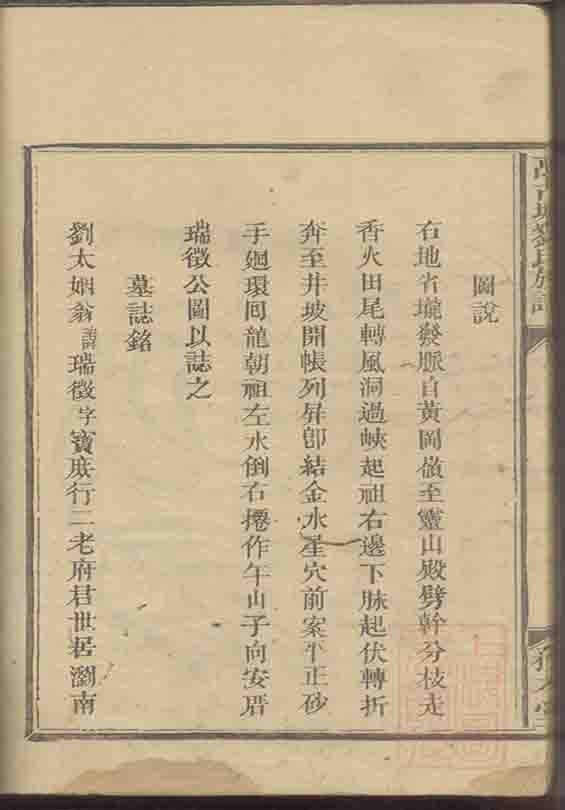 圖說
右地省壠發脈自黃岡嶺至靈山殿劈幹分枝走
香火田尾轉風洞過峽起祖右邊下脉起伏轉折
奔至井坡開帳列屛卽結金水星穴前案平正砂
手廻環囘龍朝祖左水倒右捲作午山子向安厝
瑞徵公圖以誌之
墓誌銘
劉太姻翁諱瑞徵字寶厎行二老府君世居瀏南
劉氏族譜